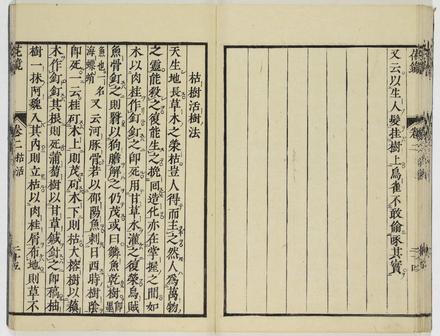 又云以生人髮挂樹上烏雀不敢偷啄其實
枯樹活樹法
天生地長草木之榮枯豈人得而主之然人爲萬物
之靈能殺之復能生之挽回造化亦在掌握之間如
木以肉桂作釘釘之卽死用甘草水灌之復榮烏賊
魚骨釘之則瞖以狗膽解之仍茂或曰鱭魚乾樹
魚也一名
海螵蛸
又云河豚骨若以邵陽魚刺日西時樹陰
卽死一云桂木上則茂木下則枯大榕樹以
木作釘釘其根則死蒲萄樹以甘草鍼釘之卽
樹一抹阿魏入其內則立枯以肉桂屑布地則草不
花鏡
卷二
枯活